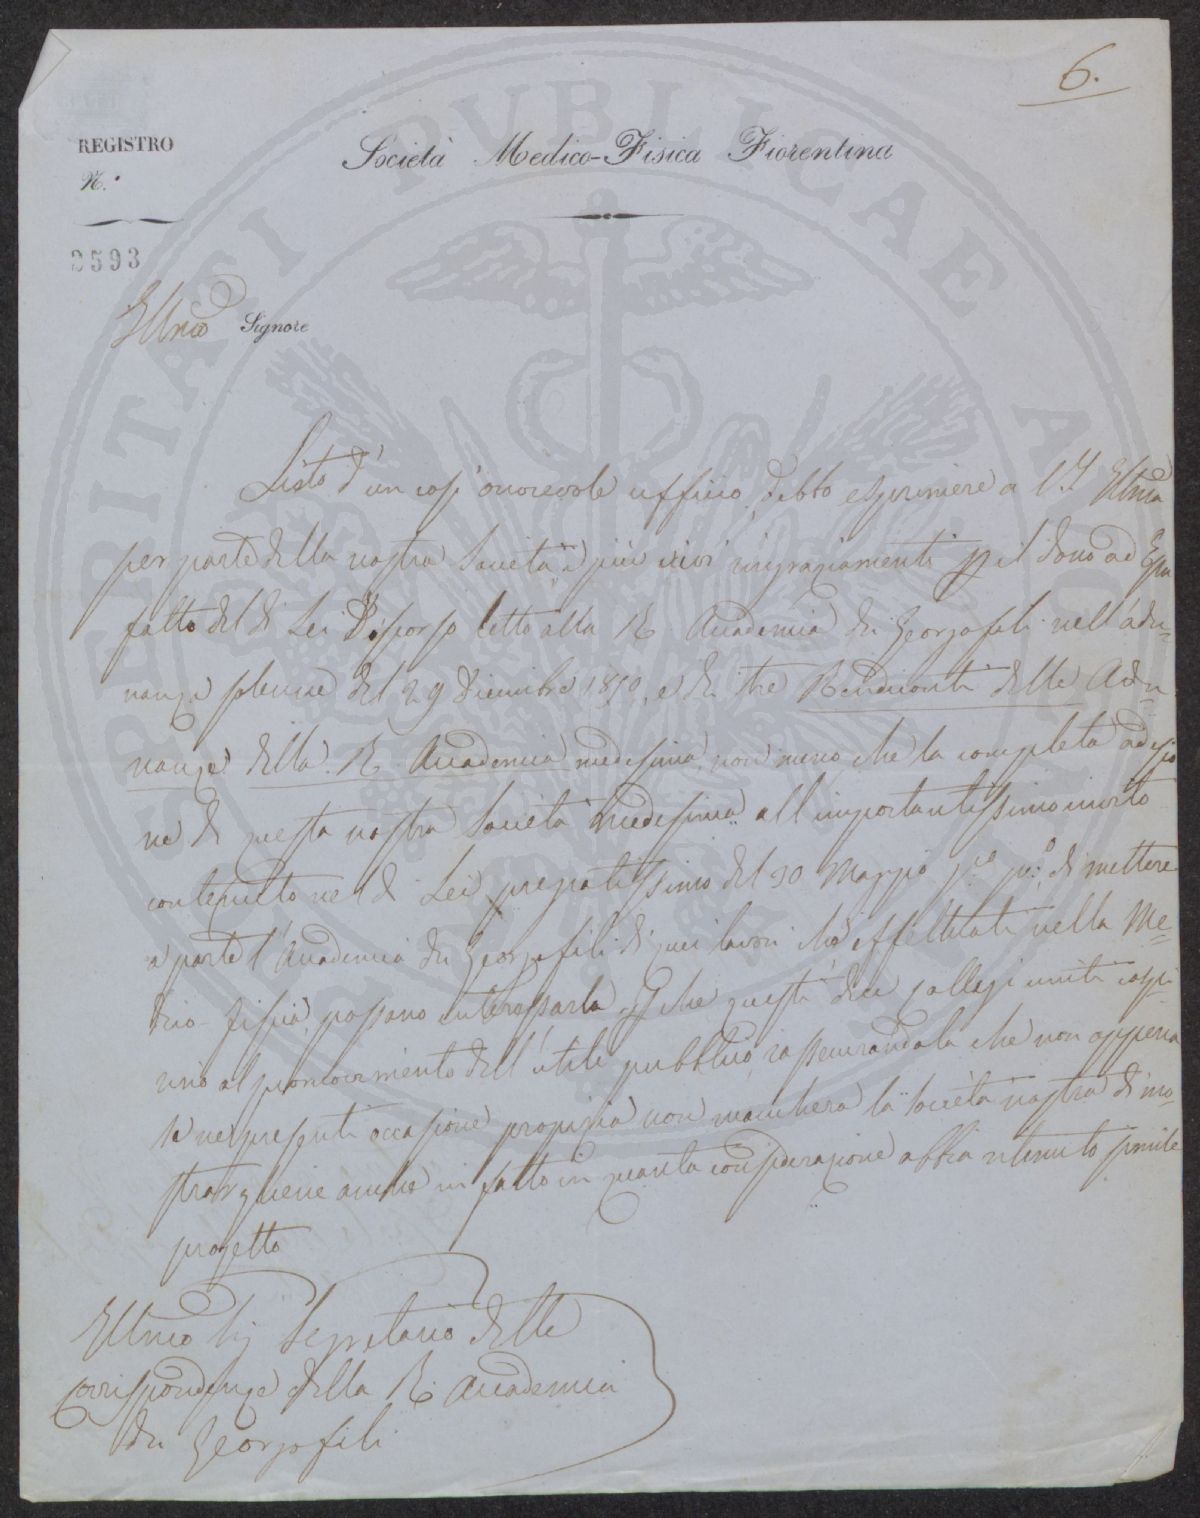 6.
REGISTRO
N.
Società Medico-Fisica Fiorentina
2593
Illmo Signore
Lieto d'un così onorevole ufficio, debbo esprimere a V.S. Illma
per parte della nostra Società i più vivi ringraziamenti p il dono ad Essa
fatto del di Lei Discorso letto alla R. Accademia dei Georgofili nell'adu-
nanza solenne del 29 Dicembre 1850, e di tre Rendiconti delle Adu-
nanze della R. Accademia medesima, non meno che la completa adesio
ne di questa nostra Società medesima all'importantissimo invito
contenuto nel di Lei pregiatissimo del 30 Maggio p.o p.o di mettere
a parte l'Accademia dei Georgofili di quei lavori che effettuati nella Me-
dico-fisica, possano interessarla, e che questi due collegi uniti cospi-
rino al promovimento dell'utile pubblico, rassicurandola che non appena
se ne presenti occasione propizia non mancherà la Società nostra di mo-
strargliene anche in fatto in quanta considerazione abbia ritenuto simile
progetto
Illmo Sig Segretario delle
Corrispondenze della R. Accademia
dei Georgofili
PROSPERITATI PUBLICAE AUGENDAE